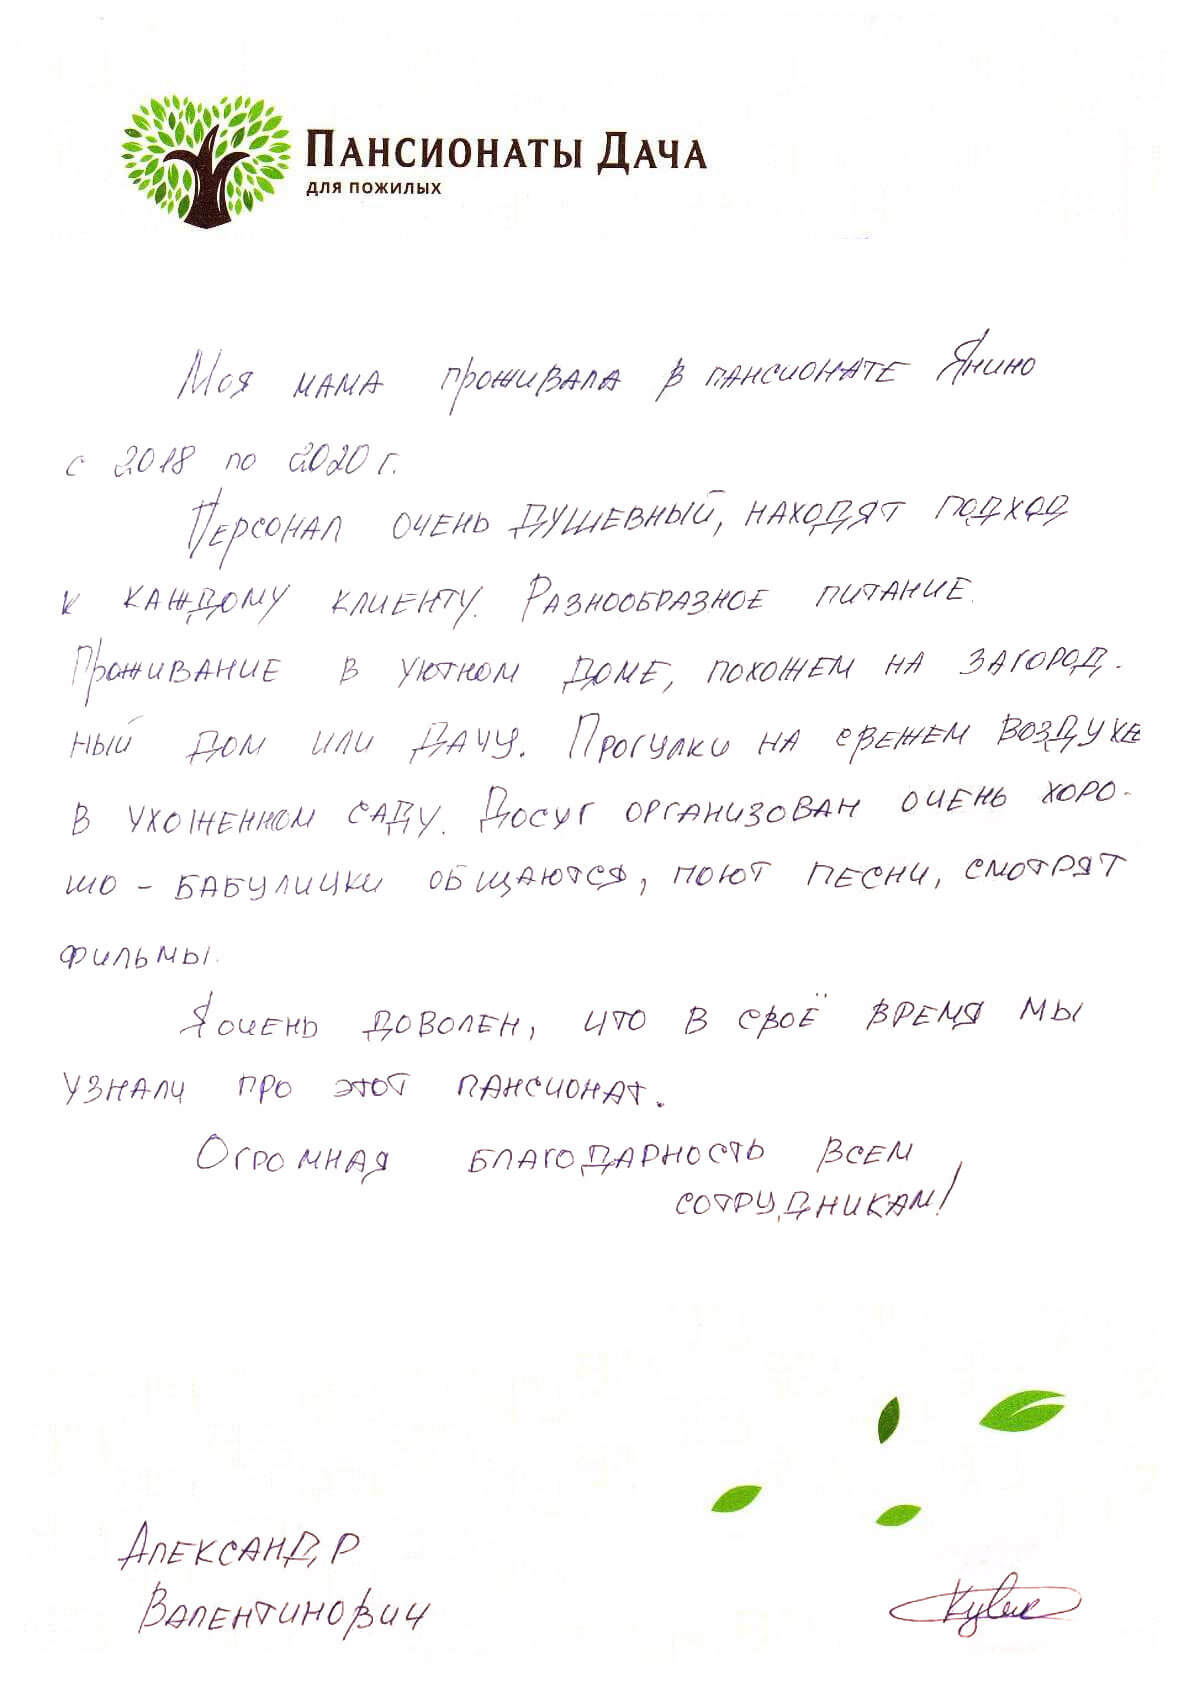 ПАНСИОНАТЫ ДАЧА
ДЛЯ ПОЖИЛЫХ
Моя мама проживала в пансионате Янино
с 2018 по 2020 г.
Персонал очень душевный, находят подход
к каждому клиенту. Разнообразное питание.
Проживание в уютном доме, похожем на загород-
ный дом или дачу. Прогулки на свежем воздухе
в ухоженном саду. Досуг организован очень хоро-
шо - бабулицки общаются, поют песни, смотрят
фильмы.
Я очень доволен, что в своё время мы
узнали про этот пансионат.
Огромная благодарность всем
сотрудникам!
Александр
Валентинович